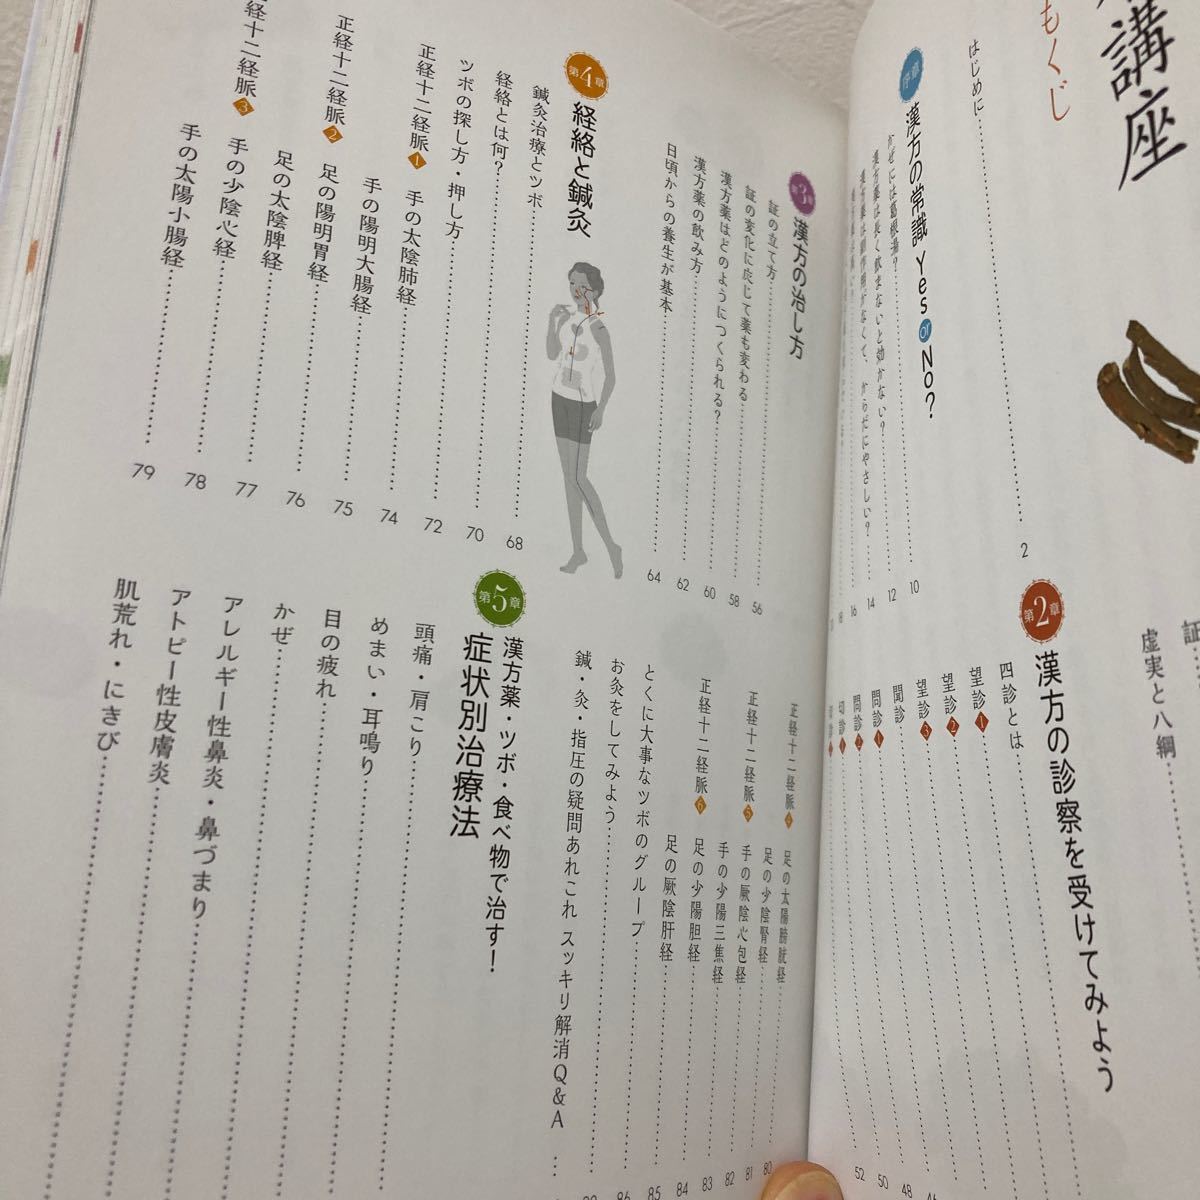 講座
もくじ
はじめに 2
序章 漢方の常識 Yes or No?
かぜには葛根湯? 10
漢方薬は長く飲まないと効かない? 12
漢方薬は副作用がなくて、からだにやさしい? 14
16
証
虚実と八綱
第2章 漢方の診察を受けてみよう
四診とは
望診1
望診2
望診3
聞診
問診1
問診2
切診1
46
48
50
52
第3章 漢方の治し方
証の立て方 56
証の変化に応じて薬も変わる 58
漢方薬はどのようにつくられる? 60
漢方薬の飲み方 62
日頃からの養生が基本 64
第4章 経絡と鍼灸
鍼灸治療とツボ 68
経絡とは何? 70
ツボの探し方・押し方 72
正経十二経脈1 手の太陰肺経 74
手の陽明大腸経 75
正経十二経脈2 足の陽明胃経 76
足の太陰脾経 77
正経十二経脈3 手の少陰心経 78
手の太陽小腸経 79
正経十二経脈4 足の太陽膀胱経 80
足の少陰腎経 81
正経十二経脈5 手の厥陰心包経 82
手の少陽三焦経 83
正経十二経脈6 足の少陽胆経 84
足の厥陰肝経 85
とくに大事なツボのグループ 86
お灸をしてみよう
鍼・灸・指圧の疑問あれこれ スッキリ解消Q&A
第5章 漢方薬・ツボ・食べ物で治す!
症状別治療法
頭痛・肩こり
めまい・耳鳴り
目の疲れ
かぜ
アレルギー性鼻炎・鼻づまり
アトピー性皮膚炎
肌荒れ・にきび